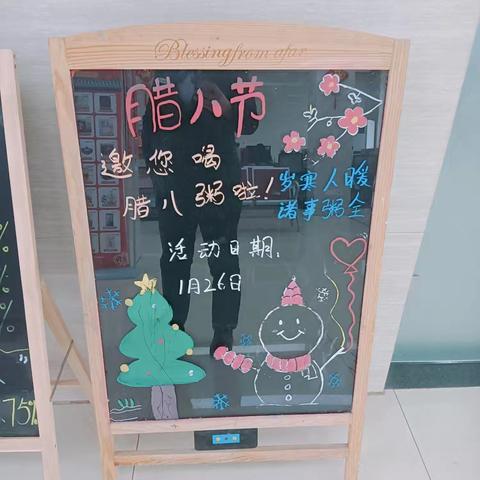 Blessing from afar
腊八节
邀您喝
腊八粥啦！
岁寒人暖
诸事粥全
活动日期：
1月26日
75%